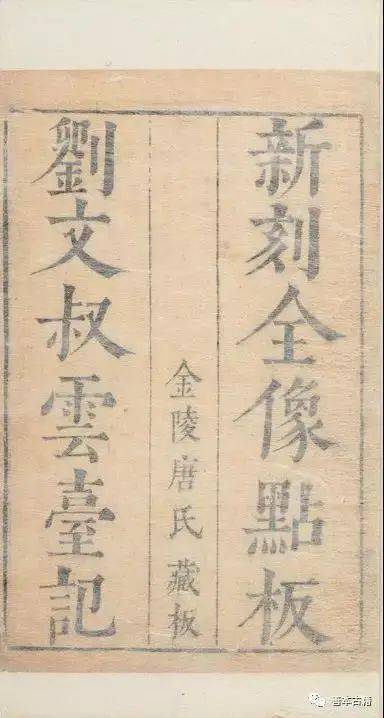 新刻全像點板
金陵唐氏藏板
劉文叔雲臺記
善本古籍